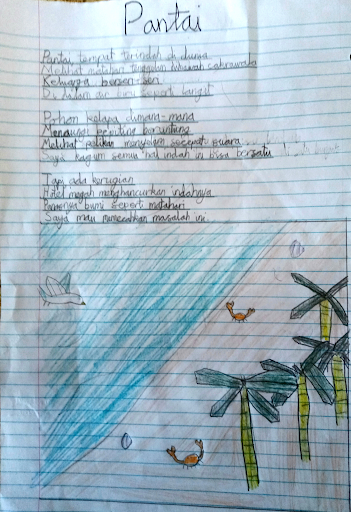 Pantai
Pantai tempat terindah di dunia
Melihat matahari tenggelam dibawah cakrawala
Keluarga bersen-sen
Di dalam air biru seperti langit
Pohon kelapa dimana-mana
Menangis beruntung
Melihat pelikan menyelam secepat suara
Saya kagum semua hal indah ini bisa bersatu
Tapi ada kerugian
Hotel megah menghancurkan indahnya
Panasnya bumi seperti matahari
Saya mau memecahkan masalah ini.